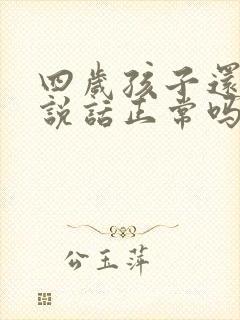 四歲孩子還
說話正常嗎
公玉萍